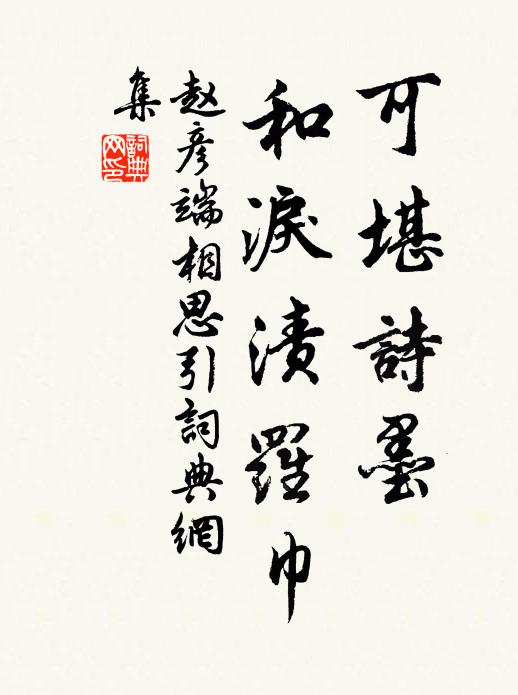 可堪詩墨
和淚漬羅巾
赵彦端相思引詞典網
集
詞典网印